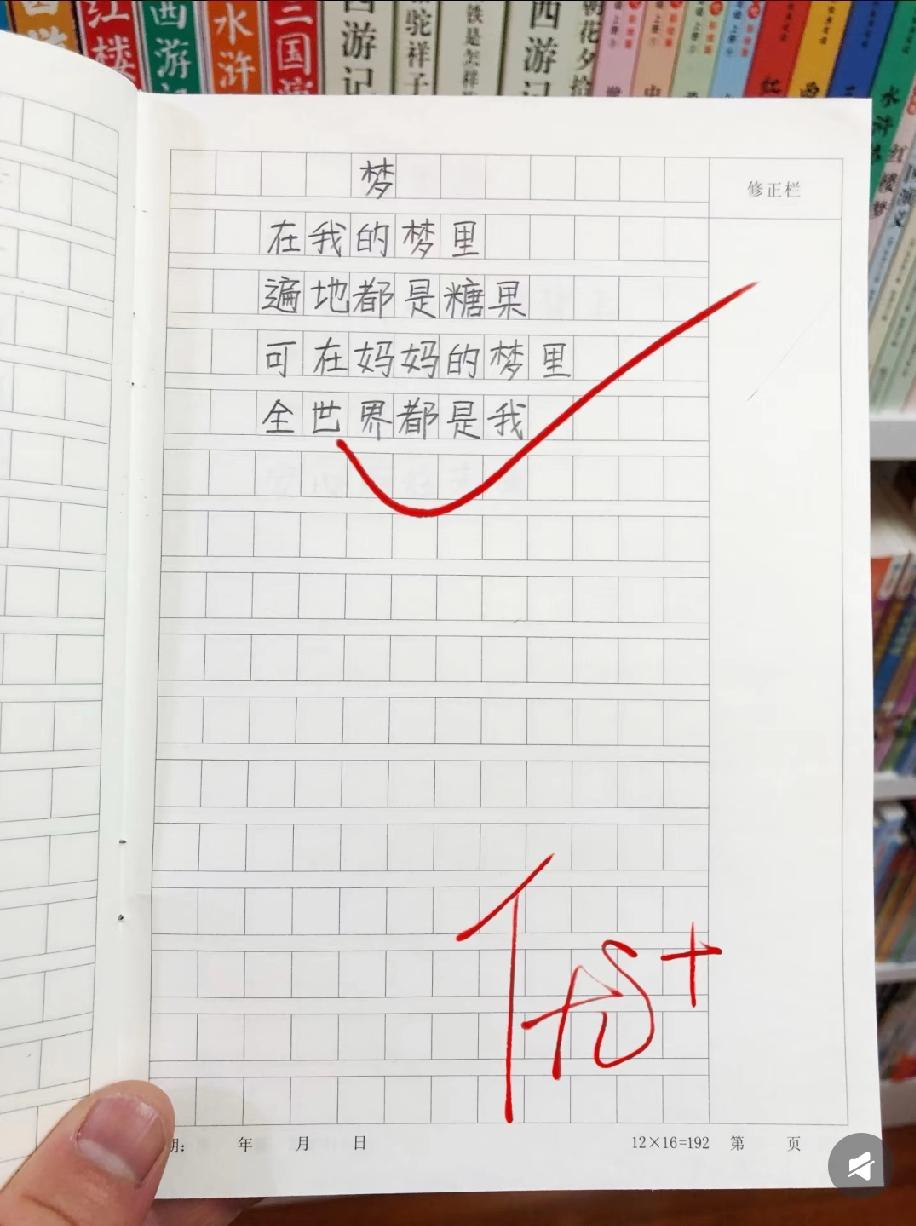 红楼
西游记
水浒
三国演
西游记
骆驼祥子
铁是怎样
西游记
朝花夕拾
水浒
红楼梦
梦
修正栏
在我的梦里
遍地都是糖果
可在妈妈的梦里
全世界都是我
优+
期: 年 月 日
12×16=192 第 页